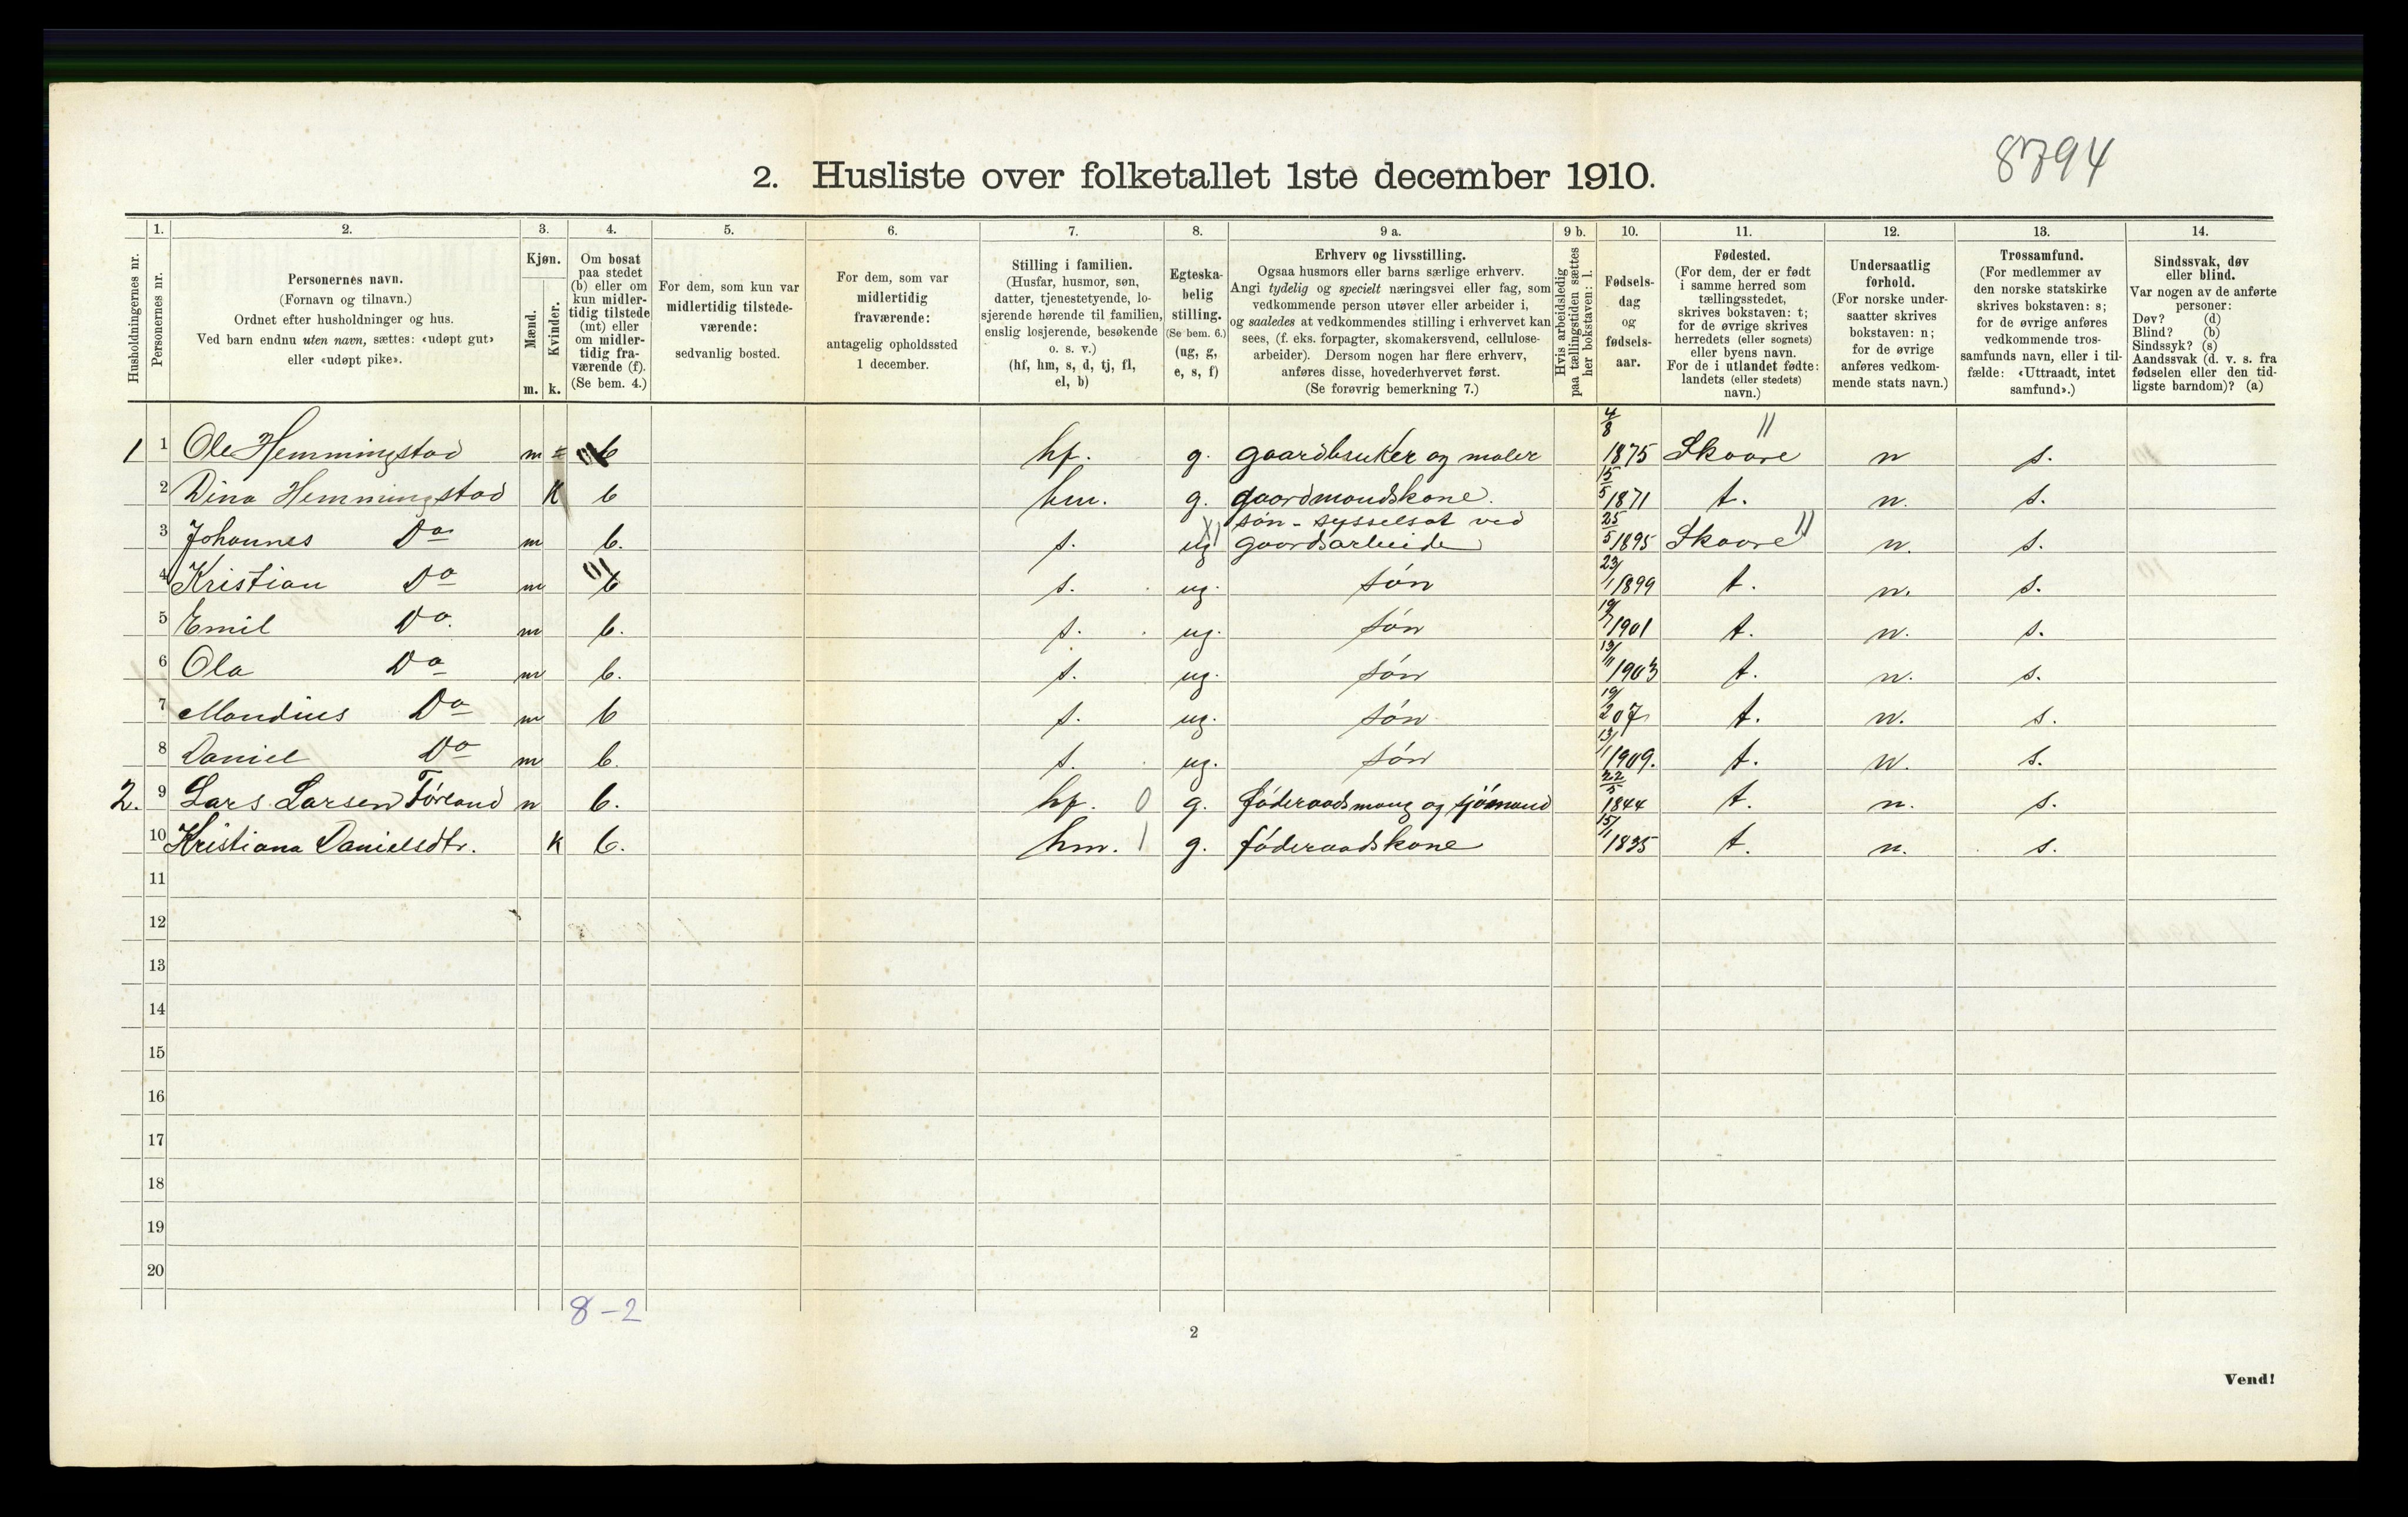 8794
2. Husliste over folketallet 1ste december 1910.
Husholdningernes nr.
1.
Personernes nr.
2.
Personernes navn.
(Fornavn og tilnavn.)
Ordnet efter husholdninger og hus.
Ved barn endnu uten navn, sættes: «udøpt gut»
eller «udøpt pike».
3.
Kjøn.
Mænd.
Kvinder.
m. k.
4.
Om bosat
paa stedet
(b) eller om
kun midler-
tidig tilstede
(mt) eller
om midler-
tidig fra-
værende (f).
(Se bem. 4.)
5.
For dem, som kun var
midlertidig tilstede-
værende:
sedvanlig bosted.
6.
For dem, som var
midlertidig
fraværende:
antagelig opholdssted
1 december.
7.
Stilling i familien.
(Husfar, husmor, søn,
datter, tjenestetyende, lo-
sjerende hørende til familien,
enslig losjerende, besøkende
o. s. v.)
(hf, hm, s, d, tj, fl,
el, b)
8.
Egteska-
belig
stilling.
(Se bem. 6.)
(ug, g,
e, s, f)
9 a.
Erhverv og livsstilling.
Ogsaa husmors eller barns særlige erhverv.
Angi tydelig og specielt næringsvei eller fag, som
vedkommende person utøver eller arbeider i,
og saaledes at vedkommendes stilling i erhvervet kan
sees, (f. eks. forpagter, skomakersvend, cellulose-
arbeider). Dersom nogen har flere erhverv,
anføres disse, hovederhvervet først.
(Se forøvrig bemerkning 7.)
9 b.
Hvis arbeidsledig
paa tællingstiden sættes
her bokstaven: l.
10.
Fødsels-
dag
og
fødsels-
aar.
11.
Fødested.
(For dem, der er født
i samme herred som
tællingsstedet,
skrives bokstaven: t;
for de øvrige skrives
herredets (eller sognets)
eller byens navn.
For de i utlandet fødte:
landets (eller stedets)
navn.)
12.
Undersaatlig
forhold.
(For norske under-
saatter skrives
bokstaven: n;
for de øvrige
anføres vedkom-
mende stats navn.)
13.
Trossamfund.
(For medlemmer av
den norske statskirke
skrives bokstaven: s;
for de øvrige anføres
vedkommende tros-
samfunds navn, eller i til-
fælde: «Uttraadt, intet
samfund».)
14.
Sindssvak, døv
eller blind.
Var nogen av de anførte
personer:
Døv? (d)
Blind? (b)
Sindssyk? (s)
Aandssvak (d. v. s. fra
fødselen eller den tid-
ligste barndom)? (a)
1 1 Ole Hemmingstad m b hf. g. gaardbruker og maler 4/8 1875 Skaare n s.
2 Dina Hemmingstad k b hm. g. gaardmandskone. 15/5 1871 t. n. s.
3 Johannes Do m b. s. ug x) søn - sysselsat ved gaardsarbeide 25/5 1895 Skaare n. s.
4 Kristian Do m b s. ug. søn 23/1 1899 t. n. s.
5 Emil Do. m b. s. ug. søn 19/7 1901 t. n. s.
6 Ola Do m b. s. ug. søn 13/11 1903 t. n. s.
7 Mandius Do m b s. ug. søn 19/2 07 t. n. s.
8 Daniel Do m b. s. ug. søn 13/1 1909. t. n. s.
2. 9 Lars Larsen Førland m b. hf. 0 g. føderaadsmang og sjømand 22/5 1844 t. n. s.
10 Kristiana Danielsdtr. k b. hm. 1 g. føderaadskone 15/1 1835 t. n. s.
11
12
13
14
15
16
17
18
19
20
8-2
2
Vend!